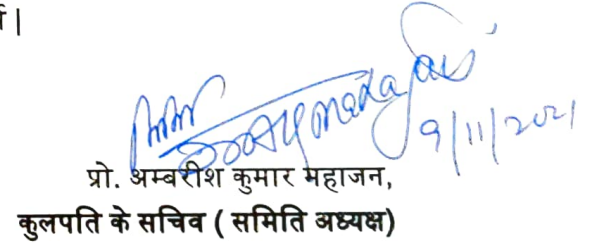 र्य।
9/11/2021
प्रो. अम्बरीश कुमार महाजन,
कुलपति के सचिव ( समिति अध्यक्ष)